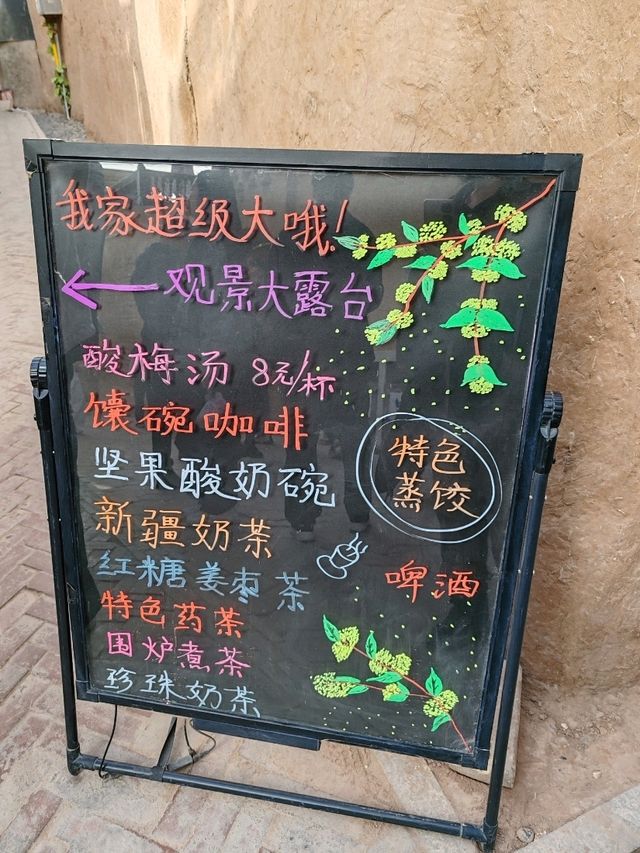 我家超级大哦!
←观景大露台
酸梅汤 8元/杯
馕碗咖啡
坚果酸奶碗
特色
蒸饺
新疆奶茶
红糖姜枣茶
啤酒
特色药茶
围炉煮茶
珍珠奶茶